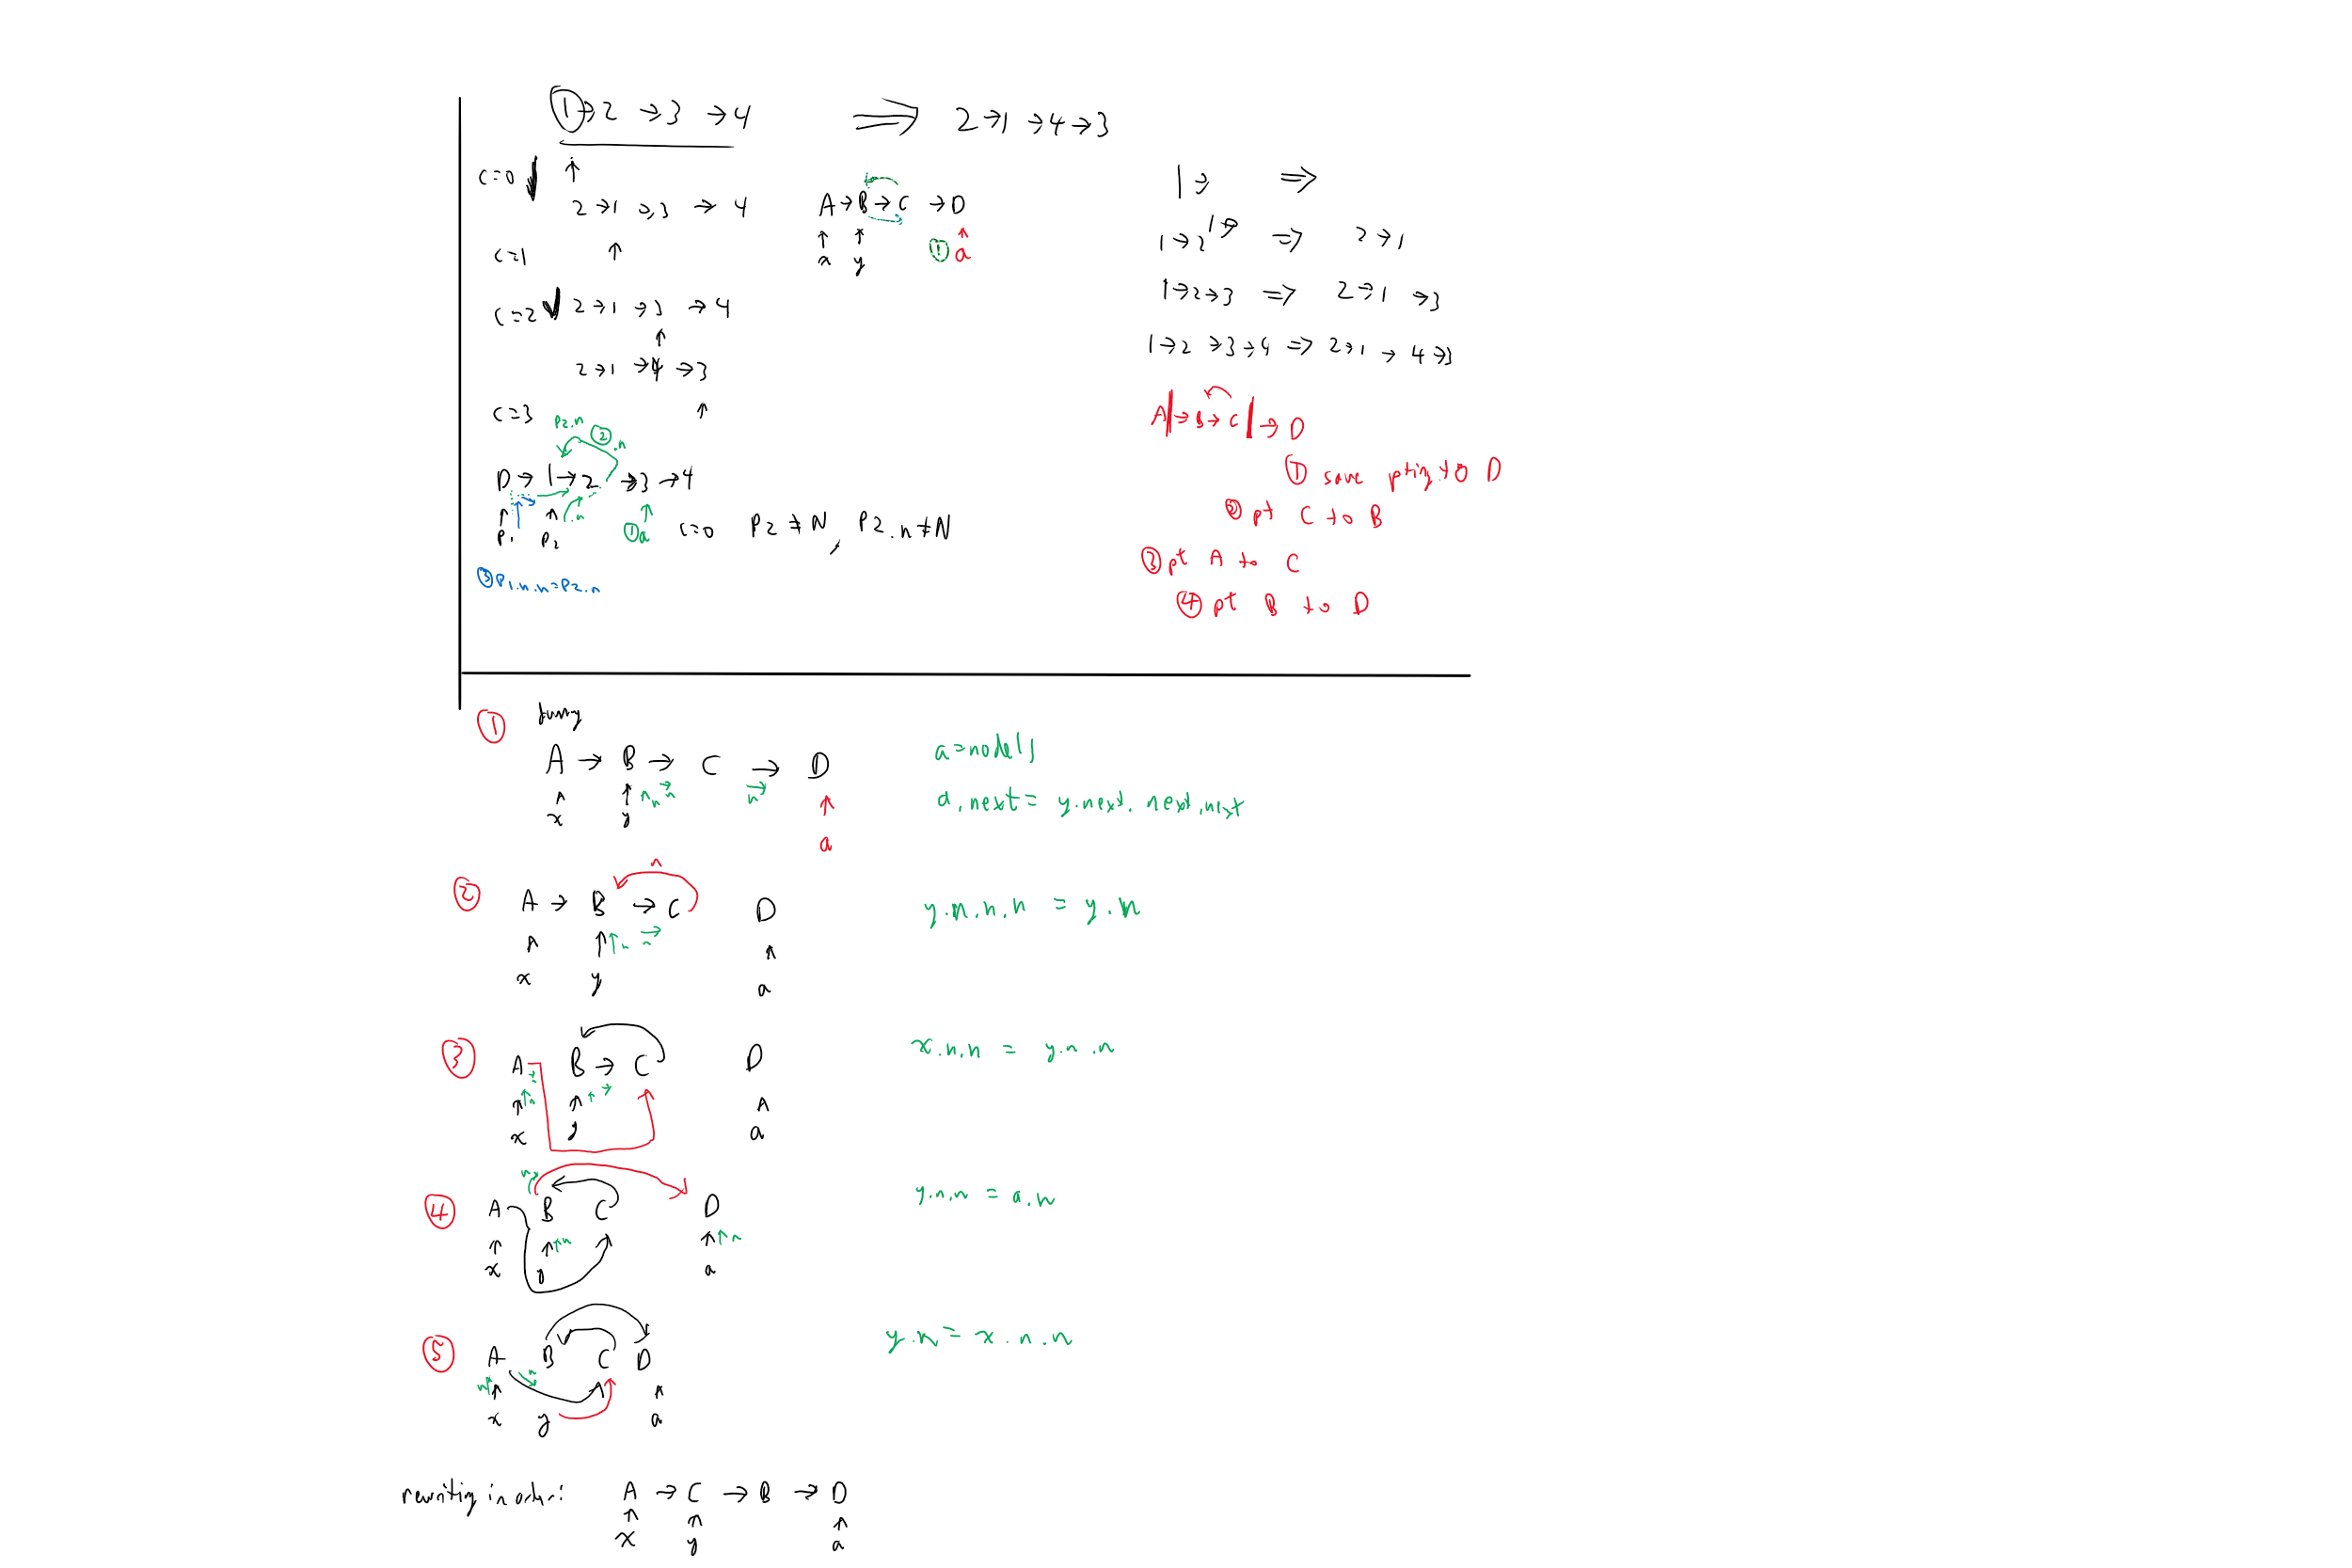 1→2 →3 →4 ⇒ 2→1 →4→3
c=0 ↑
2→1 →3 → 4
c=1 ↑
c=2 2→1 →3 →4
↑
2→1 →4 →3
c=3 ↑
p2.n ② .n
D→ 1→2 →3→4
↑ ↑ .n ↑
p1 p2 ①a c=0 P2≠N, P2.n≠N
③P1.n.n=P2.n
A→B→C →D
↑ ↑ ↑
x y ① a
1→ ⇒
1→2 ⇒ 2→1
1→2→3 ⇒ 2→1 →3
1→2 →3→4 ⇒ 2→1 → 4→3
A|→B→C|→D
① save pting to D
② pt C to B
③ pt A to C
④ pt B to D
①
A → B → C → D
n n n
x y a
a=node()
a.next= y.next.next.next
② n
A → B →C D
n n
x y a
y.n.n.n = y.n
③ A B → C D
n
x y a
x.n.n = y.n.n
n
④ A B C D
n n
x y a
y.n.n = a.n
⑤ A B C D
n n
x y a
y.n= x.n.n
rewriting in order: A → C → B → D
↑ ↑ ↑
x y a